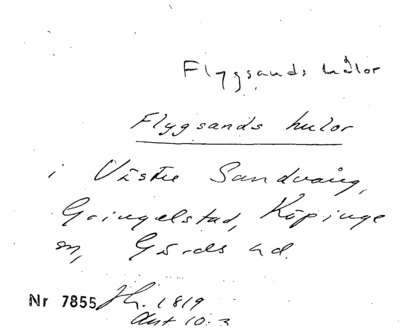 Flygsands hålor
Flygsands hulor
i Västre Sandvång,
Gringelstad, Köpinge
sn, Gärds hd.
Nr 7855 Jh. 1819
Akt 10:2